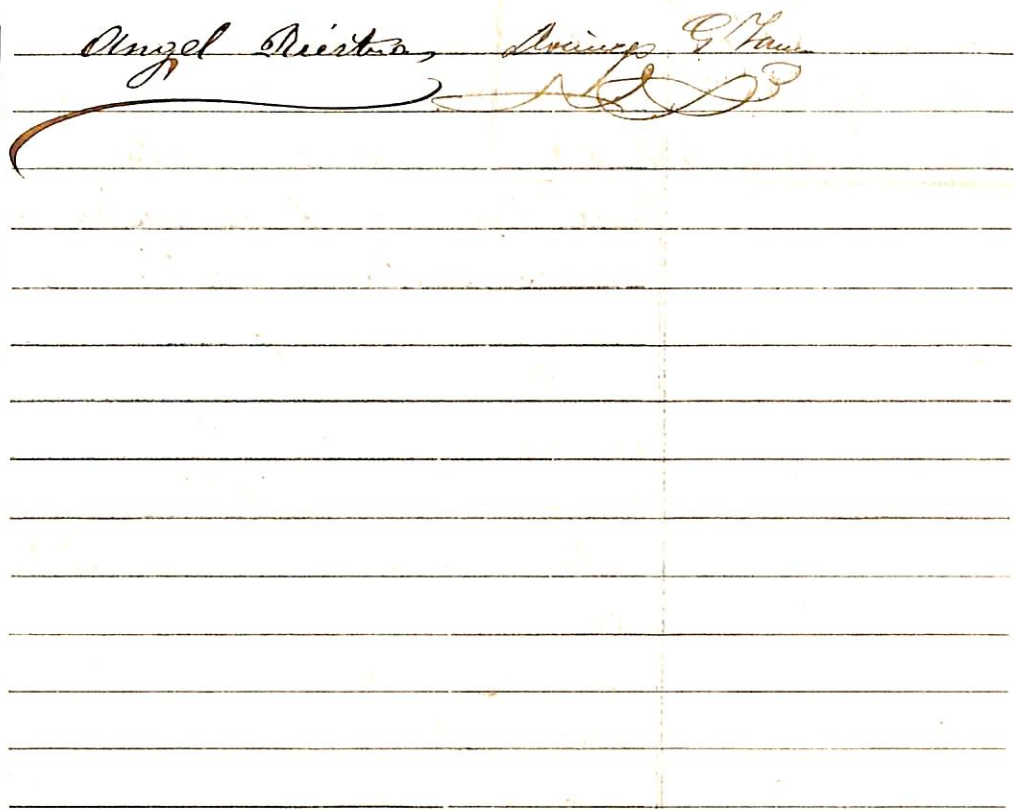 Angel Riestra Domingo G